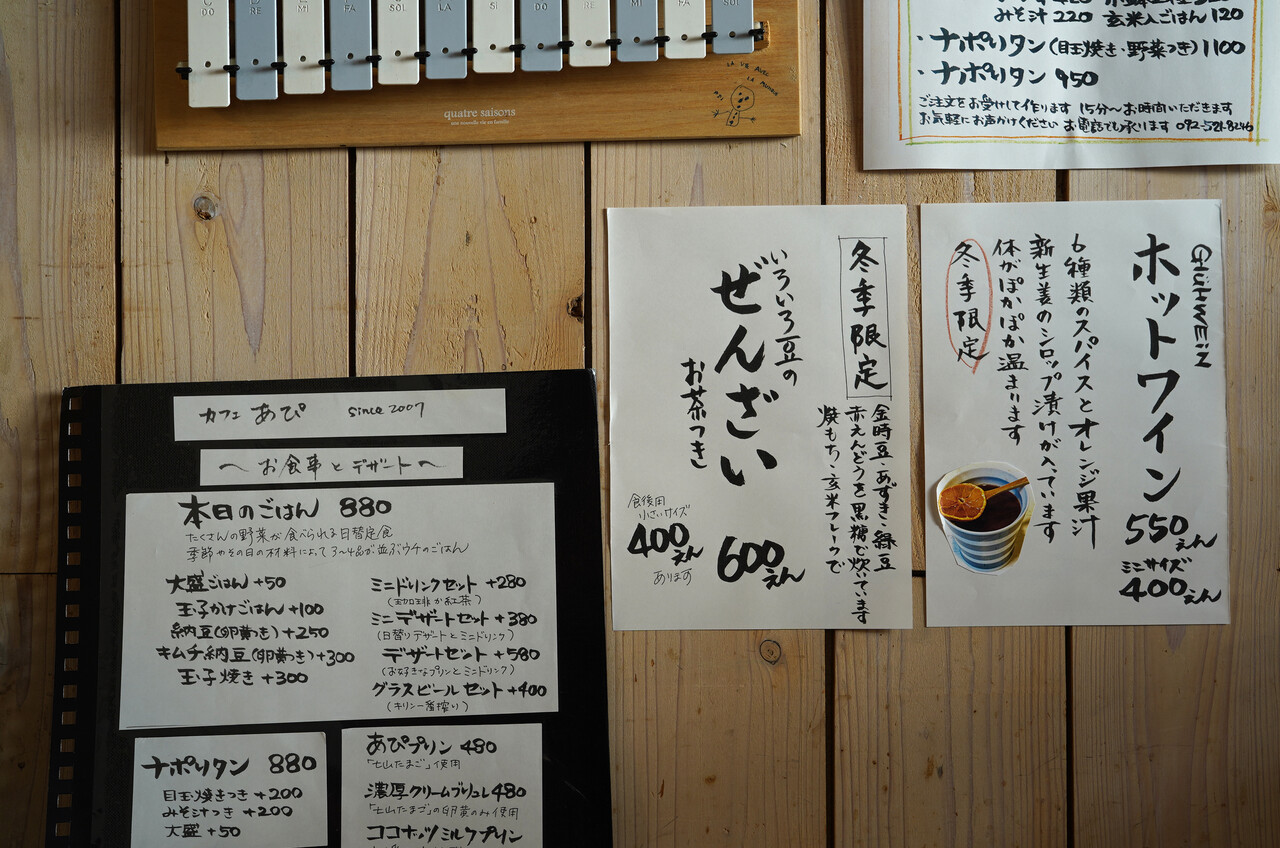 DO RE MI FA SOL LA SI DO RE MI FA SOL
quatre saisons
une nouvelle vie en famille
みそ汁 220 玄米入ごはん 120
・ナポリタン(目玉焼き・野菜つき) 1100
・ナポリタン 950
ご注文をお受けして作ります 15分〜お時間いただきます
お気軽にお声かけください お電話でも承ります 092-521-8246
Glühwein
ホットワイン
550えん
ミニサイズ
400えん
6種類のスパイスとオレンジ果汁
新生姜のシロップ漬けが入ています
体がぽかぽか温まります
冬季限定
冬季限定
金時豆・あずき・緑豆
赤えんどうを黒糖で炊いています
焼もち・玄米フレークで
いろいろ豆の
ぜんざい
お茶つき
600えん
食後用
小さいサイズ
400えん
あります
カフェ あぴ since 2007
〜お食事とデザート〜
本日のごはん 880
たくさんの野菜が食べられる日替定食
季節やその日の材料によって3〜4品が並ぶウチのごはん
大盛ごはん +50
玉子かけごはん +100
納豆(卵黄つき) +250
キムチ納豆(卵黄つき) +300
玉子焼き +300
ミニドリンクセット +280
(珈琲か紅茶)
ミニデザートセット +380
(日替りデザートとミニドリンク)
デザートセット +580
(お好きなプリンとミニドリンク)
グラスビールセット +400
(キリン一番搾り)
ナポリタン 880
目玉焼きつき +200
みそ汁つき +200
大盛 +50
あぴプリン 480
「七山たまご」使用
濃厚クリームブリュレ 480
「七山たまご」の卵黄のみ使用
ココナッツミルクプリン